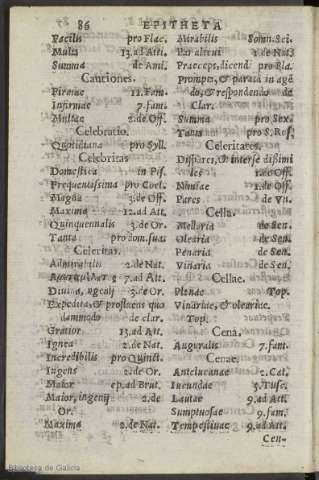 86 EPITHETA
Facilis pro Flac.
Multa 13. ad Att.
Summa de Ami.
Cautiones.
Firmae 11. Fam.
Infirmae 7. fam.
Multae 2. de Off.
Celebratio.
Quotidiana pro Syll.
Celebritas
Domestica in Pis.
Frequentissima pro Coel.
Magna 3. de Off.
Maxima 12. ad Att.
Quinquennalis 3. de Or.
Tanta pro dom. sua.
Celeritas.
Admirabilis 2. de Nat.
7. ad Att.
Diuina, ingenij 3. de Or.
Expedita, & profluens quo
dammodo de clar.
Gratior 13. ad Att.
Ignea 2. de Nat.
Incredibilis pro Quinct.
Ingens 2. de Or.
Maior ep. ad Brut.
Maior, ingenij 2. de
Or.
Maxima 2. de Nat.
Mirabilis Somn. Sci.
Par alicui 1. de Nat.
Praeceps, dicendi pro Fla.
Prompta, & parata in agē
do, & respondendo de
Clar.
Summa pro Sex.
Tanta pro S. Ros.
Celeritates.
Dispares, & inter se dissimi
les 1. de Off.
Nimiae 1. de Off.
Pares de Vn.
Cella.
Mellaria de Sen.
Olearia de Sen.
Penaria de Sen.
Vinaria de Sen.
Cellae.
Plenae Top.
Vinariae, & oleariae.
Top.
Cena.
Auguralis 7. fam.
Cenae.
Antelucanae 2. Cat.
Iucundae 5. Tusc.
Lautae 9. ad Att.
Sumptuosae 9. fam.
Tempestiuae 9. ad Att.
Cen-
Biblioteca de Galicia